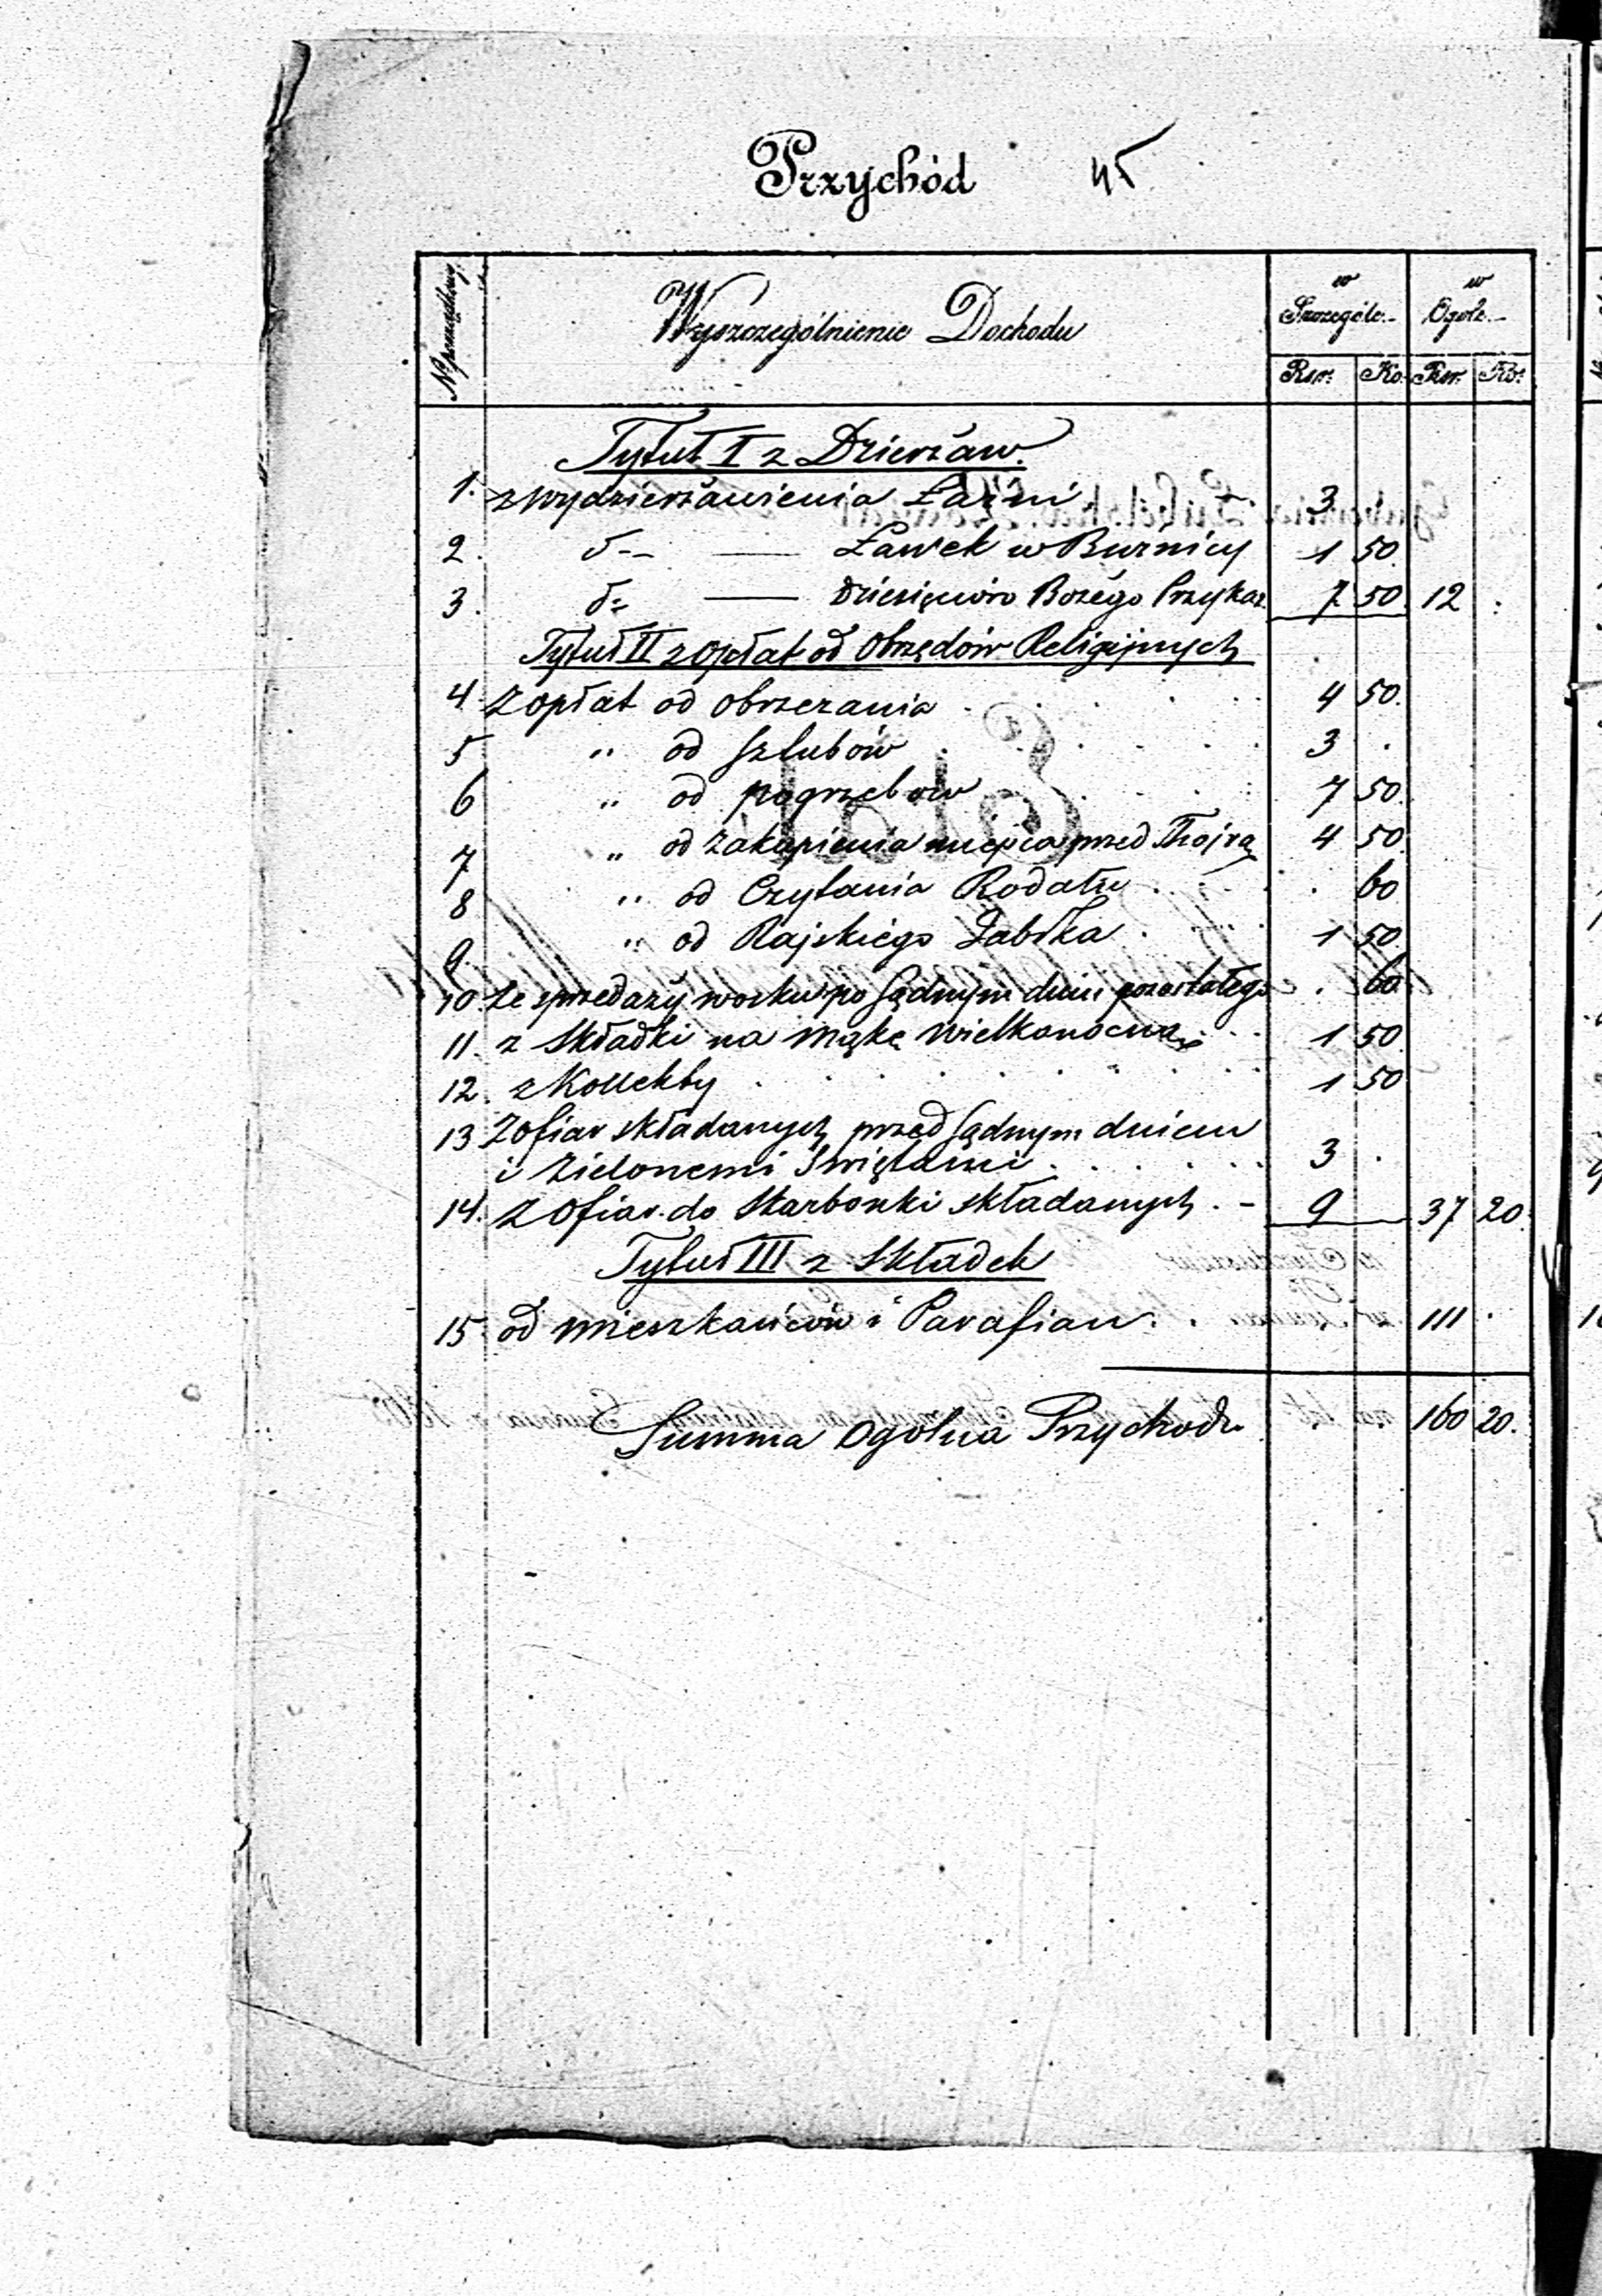 Przychód 45
№ porządkowy
Wyszczególnienie Dochodu
w Szczególe.
w Ogole.
Rsr. Ko. Rsr. Ko.
Tytuł I z Dzierżaw.
1. z wydzierżawienia Łaźni 3 .
2. d-- — Ławek w Bużnicy 1 50.
3. d-- — Dziesięcioro Bożego Przykaz. 7 50. 12 .
Tytuł II z opłat od Obrzędów Religijnych
4. Z opłat od obrzezania 4 50.
5. „ od szlubów 3 .
6 „ od pogrzebów 7 50.
7 „ od zakupienia miejsca przed Thojrą 4 50.
8 „ od Czytania Rodału . 60
9. „ od Rajskiego Jabłka 1 50.
10. ze sprzedaży wosku po Sądnym dniu pozostałego . 60
11. z składki na mąkę wielkanocną 1 50.
12. z Kollekty 1 50
13 Z ofiar składanych przed Sądnym dniem
i Zielonemi Swiętami 3 .
14. Z ofiar do Skarbonki składanych. - 9 37 20.
Tytuł III z Składek
15. od mieszkańców i Parafian . 111 .
Summa ogólna Przychodu 160 20.